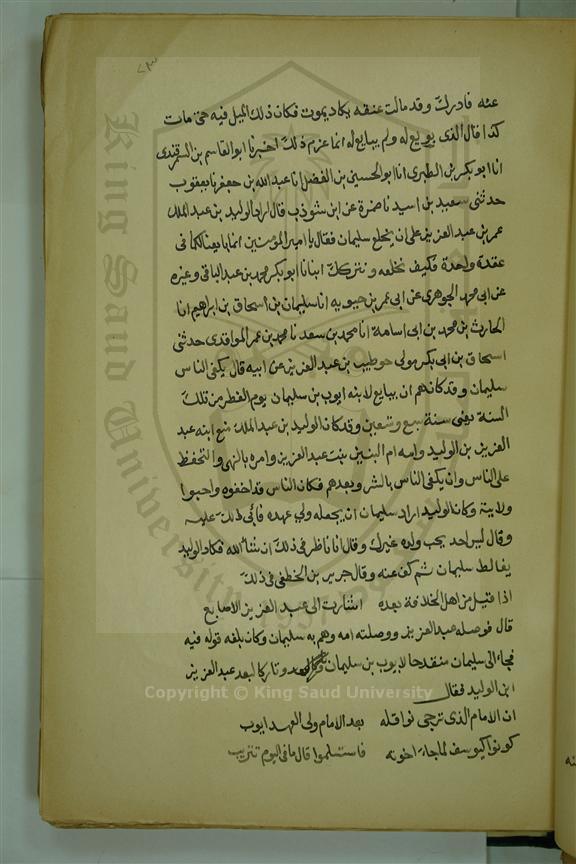 عنه فادرك وقد مالت عنقه بكاد يموت فكان ذلك الميل فيه حتى مات
كذا قال الذى بويع له ولم يبايع له انما عزم ذلك اخبرنا ابو القاسم بن السمرقندى
انا ابو بكر بن الطبرى انا ابو الحسين بن الفضل انا عبد الله بن جعفر نا يعقوب
حدثنى سعيد بن اسيد نا ضمرة عن ابن شوذب قال اراد الوليد بن عبد الملك
عمر بن عبد العزيز على ان يخلع سليمان فقال يا امير المؤمنين انما بايعنا لكما فى
عقدة واحدة فكيف نخلعه ونتركك انبانا ابو بكر محمد بن عبد الباقى وغيره
عن ابى محمد الجوهرى عن ابى عمر بن حيويه انا سليمان بن اسحاق بن ابراهيم انا
الحارث بن محمد بن ابى اسامة انا محمد بن سعد نا محمد بن عمر الواقدى حدثنى
اسحاق بن ابى بكر مولى حويطب بن عبد العزيز عن ابيه قال الناس
سليمان وقد كان هم ان يبايع لابنه ايوب بن سليمان يوم الفطر من تلك
السنة يعنى سنة سبع وتسعين وقد كان الوليد بن عبد الملك ابنه عبد
العزيز بن الوليد وامه ام البنين بنت عبد العزيز وامره والتحفظ
على الناس وان الناس بالشر وبعدهم فكان الناس قد واحبوا
ولاية وكان الوليد اراد سليمان ان يجعله ولى عهده فابى ذلك عليه
وقال ليس احد يحب ولده غيرك وقال انا ناظر فى ذلك ان شاء الله فكاد الوليد
يغالط سليمان ثم كف عنه وقال جرير بن الخطفى فى ذلك
اذا قيل من اهل الخلافة بعده اشارت الى عبد العزيز الاصابع
قال فوصله عبد العزيز ووصلته امه وهم به سليمان وكان بلغه قوله فيه
فجاء الى سليمان ممتدحا لايوب بن سليمان وتاركا لعبد العزيز
ابن الوليد فقال
ان الامام الذى ترجى نوافله بعد الامام ولى العهد ايوب
كونوا كيوسف لما جاء اخوته فاستسلموا قال ما فى اليوم تثريب
King Saud University
1957
Copyright © King Saud University